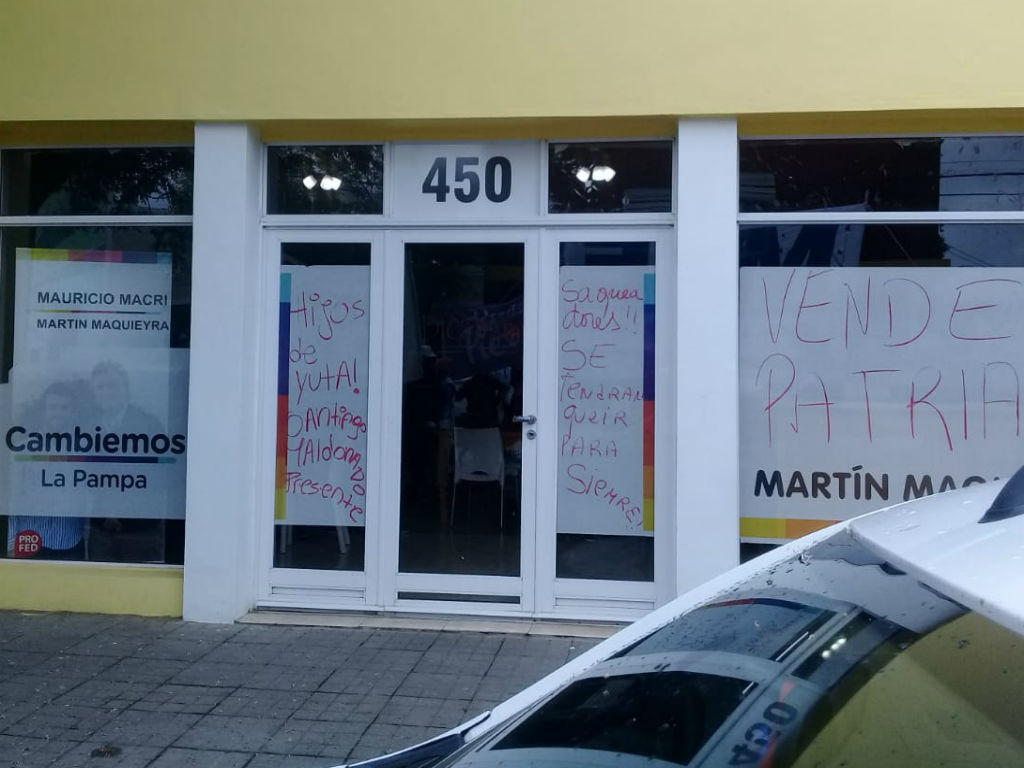 450
MAURICIO MACRI
MARTIN MAQUIEYRA
Cambiemos
La Pampa
PRO
FED
Hijos
de
YUTA!
SANTIAGO
MAldonADO
Presente
Saquea
dores!!
SE
TENDRAN
QUEIR
PARA
SIEMPRE!
VENDE
PATRIA
MARTÍN